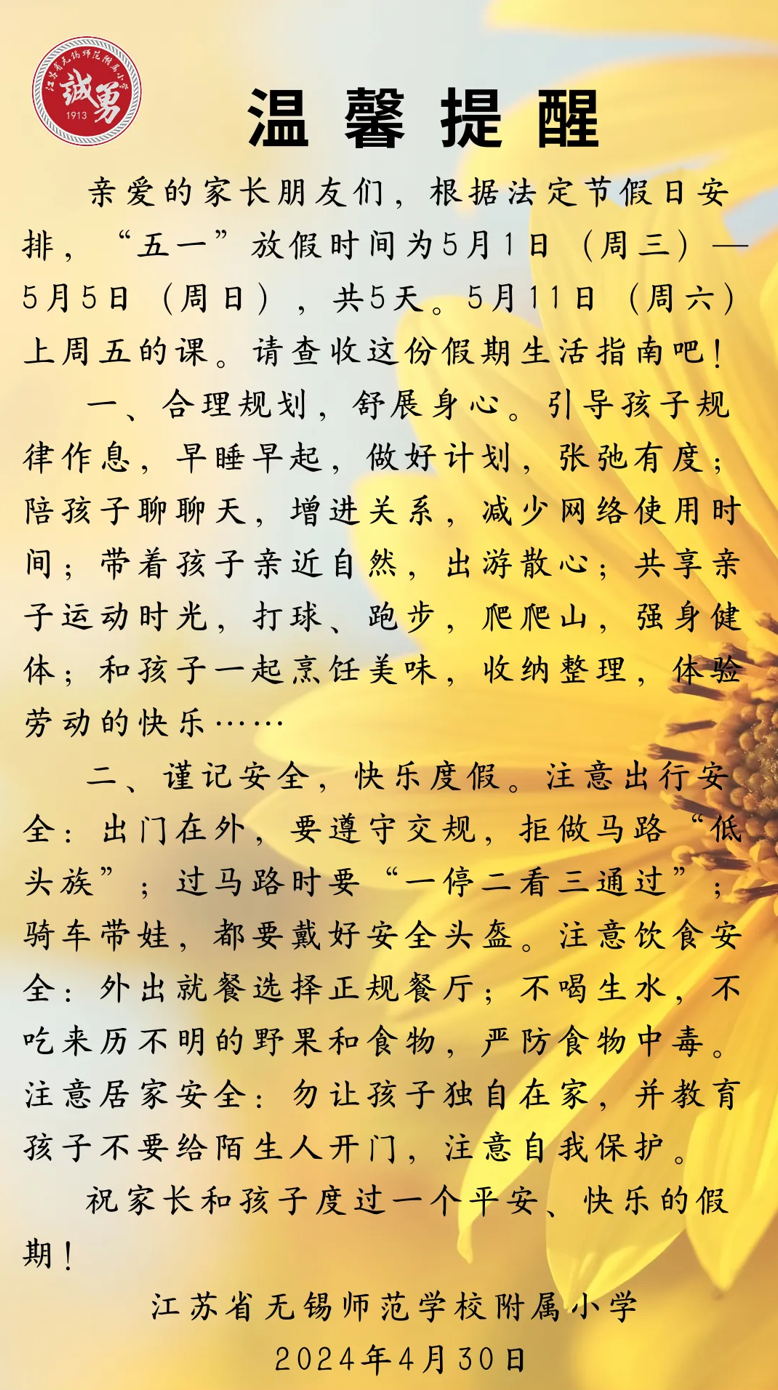 江苏省无锡师范附属小学
誠勇
1913
温馨提醒
亲爱的家长朋友们，根据法定节假日安
排，“五一”放假时间为5月1日（周三）—
5月5日（周日），共5天。5月11日（周六）
上周五的课。请查收这份假期生活指南吧！
一、合理规划，舒展身心。引导孩子规
律作息，早睡早起，做好计划，张弛有度；
陪孩子聊聊天，增进关系，减少网络使用时
间；带着孩子亲近自然，出游散心；共享亲
子运动时光，打球、跑步，爬爬山，强身健
体；和孩子一起烹饪美味，收纳整理，体验
劳动的快乐……
二、谨记安全，快乐度假。注意出行安
全：出门在外，要遵守交规，拒做马路“低
头族”；过马路时要“一停二看三通过”；
骑车带娃，都要戴好安全头盔。注意饮食安
全：外出就餐选择正规餐厅；不喝生水，不
吃来历不明的野果和食物，严防食物中毒。
注意居家安全：勿让孩子独自在家，并教育
孩子不要给陌生人开门，注意自我保护。
祝家长和孩子度过一个平安、快乐的假
期！
江苏省无锡师范学校附属小学
2024年4月30日